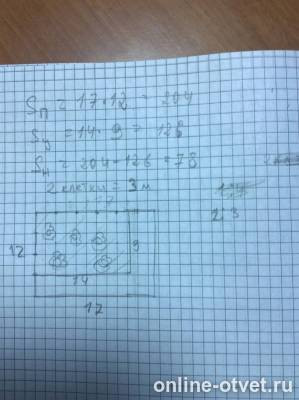 Sп = 17·12 = 204
Sу = 14·9 = 126
Sн = 204-126 = 78
2 клетки = 3 м
2; 3
12
9
14
17
online-otvet.ru